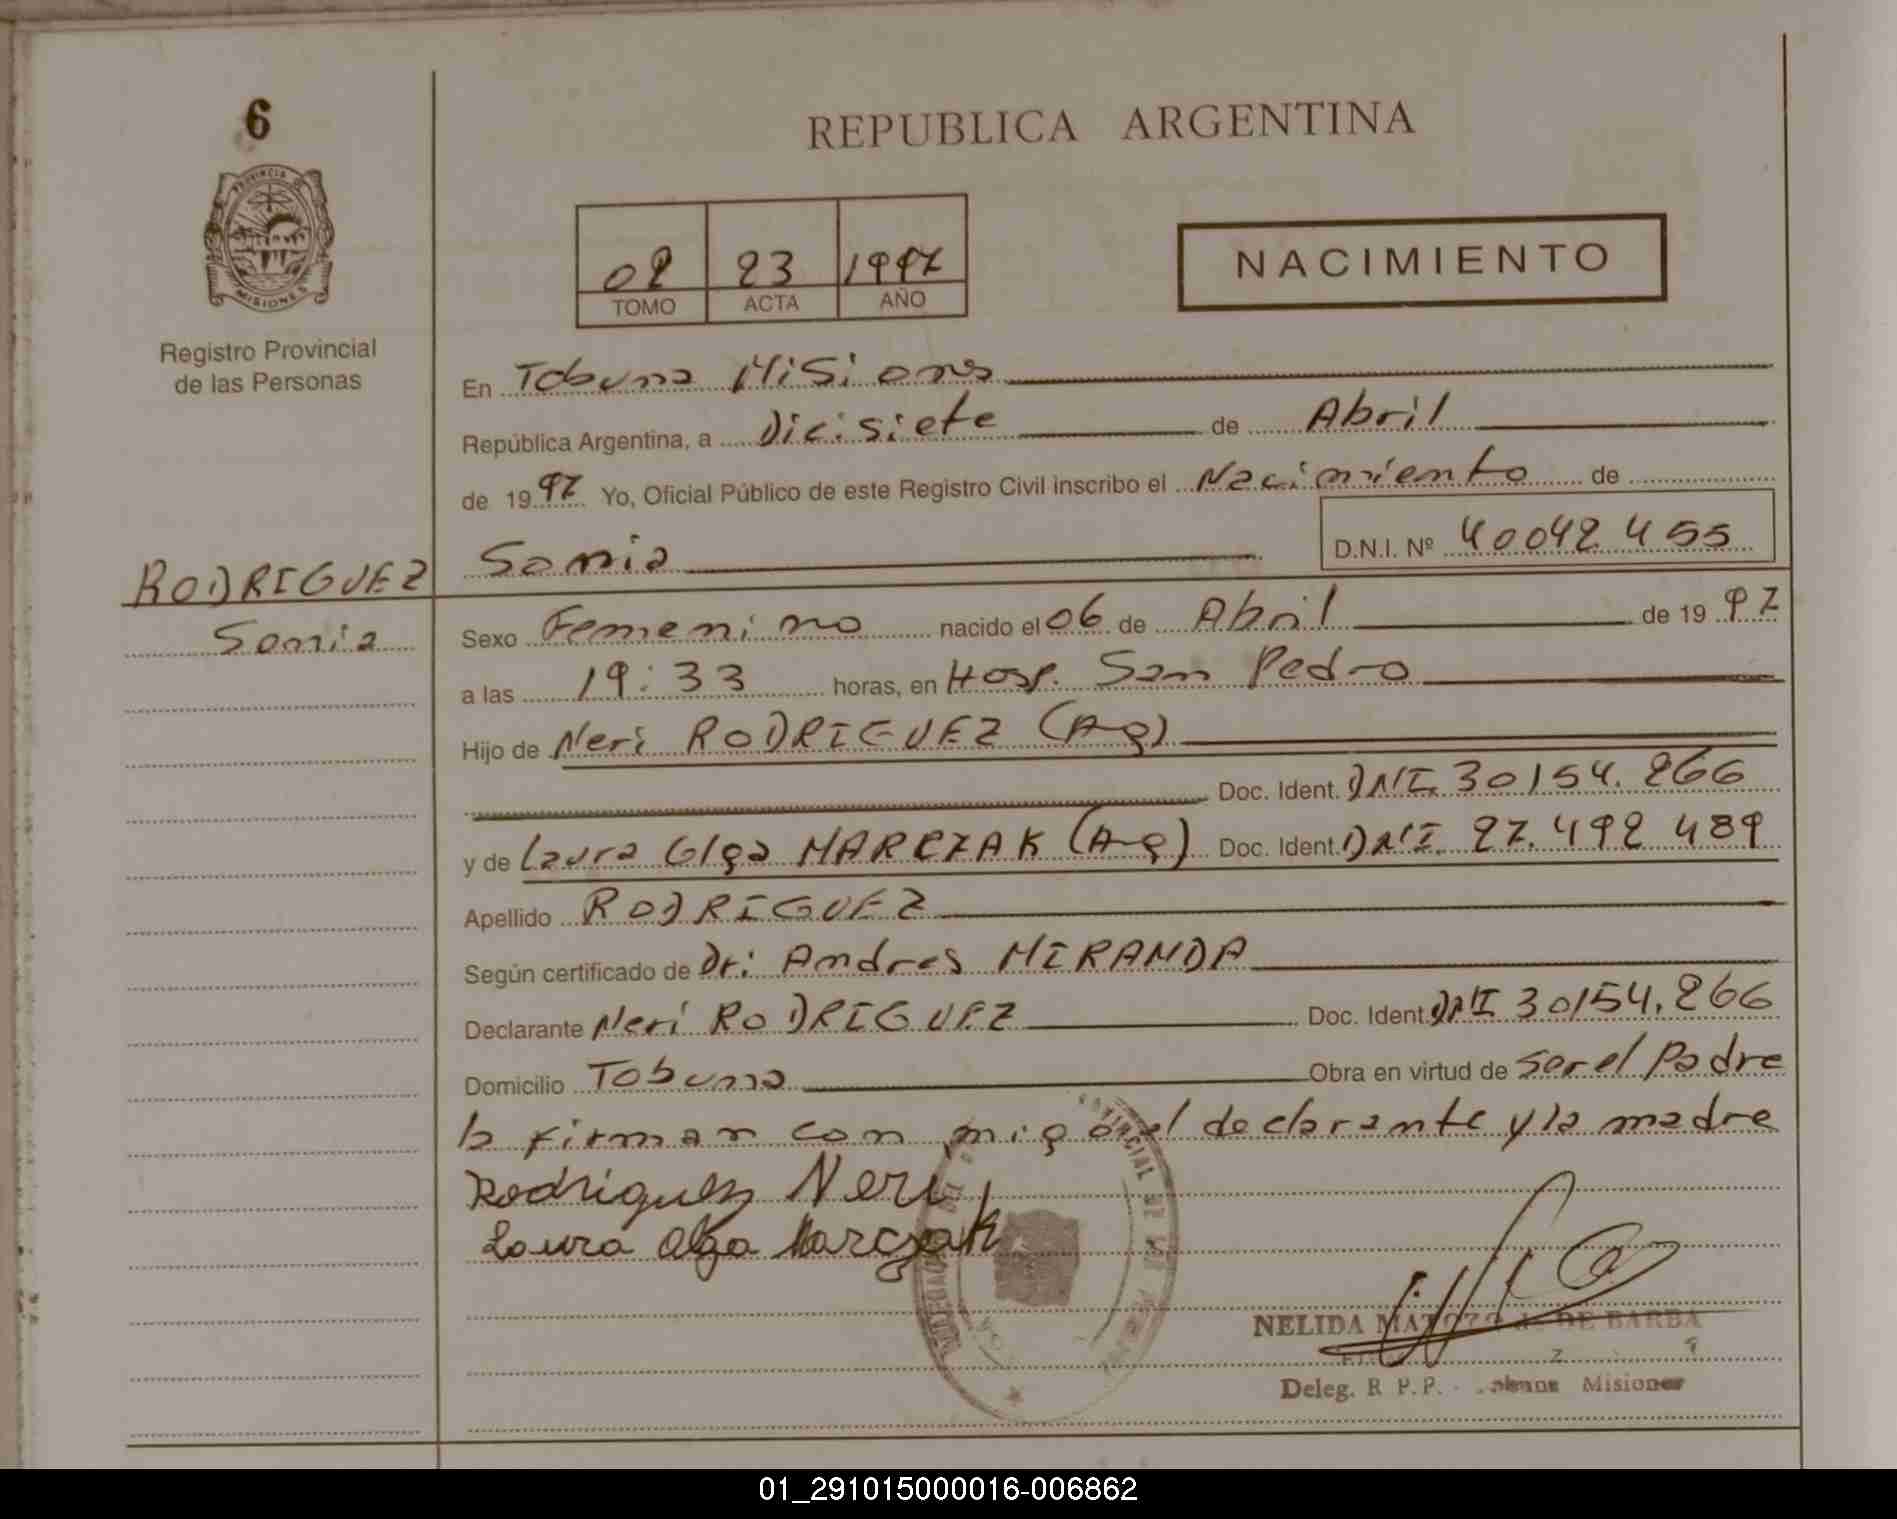 6
PROVINCIA DE
MISIONES
Registro Provincial
de las Personas
REPUBLICA ARGENTINA
02 23 1997
TOMO ACTA AÑO
NACIMIENTO
En Tobuna Misiones
República Argentina, a Dicisiete de Abril
de 1997 Yo, Oficial Público de este Registro Civil inscribo el Nacimiento de
RODRIGUEZ Sonia D.N.I. Nº 40042455
Sonia Sexo Femenino nacido el 06 de Abril de 1997
a las 19:33 horas, en Hosp. San Pedro
Hijo de Neri RODRIGUEZ (Ag)
Doc. Ident. DNI. 30154.266
y de Laura Olga MARCZAK (Ag) Doc. Ident. DNI. 27.492 489
Apellido RODRIGUEZ
Según certificado de Dr: Andres MIRANDA
Declarante Neri RODRIGUEZ Doc. Ident. DNI 30154.266
Domicilio Tobuna Obra en virtud de ser el Padre
la firman con migo el declarante y la madre
Rodriguez Neri
Laura Olga Marczak
NELIDA DE BARBA
Deleg. R P.P. Misiones
01_291015000016-006862